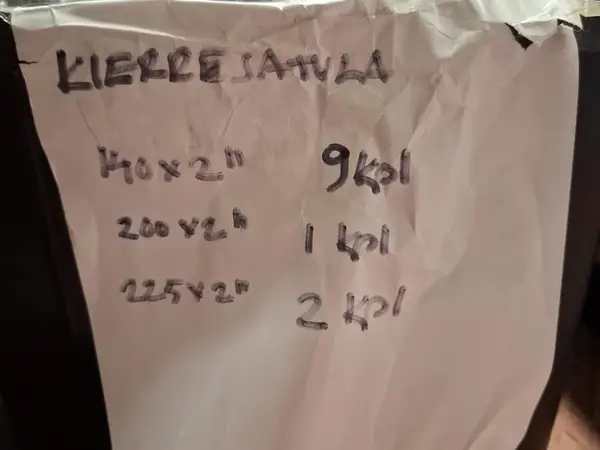 KIERRESATULA
140x2" 9 kpl
200x2" 1 kpl
225x2" 2 kpl